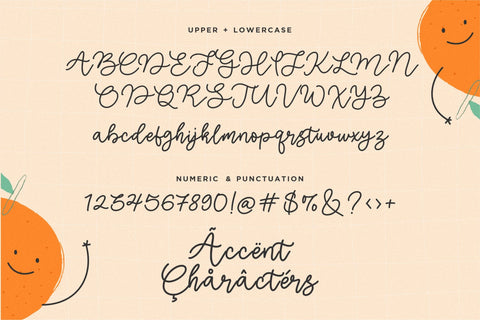 UPPER + LOWERCASE
ABCDEFGHIJKLMN
OPQRSTUVWXYZ
abcdefghijklmnopqrstuvwxyz
NUMERIC & PUNCTUATION
1234567890!@#$%&?<>+
Ãccënt
Çhåràctérs